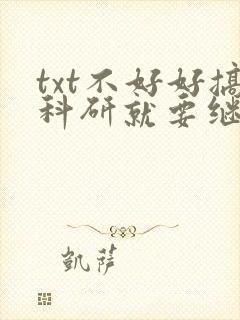 txt不好好搞
科研就要继
凯萨